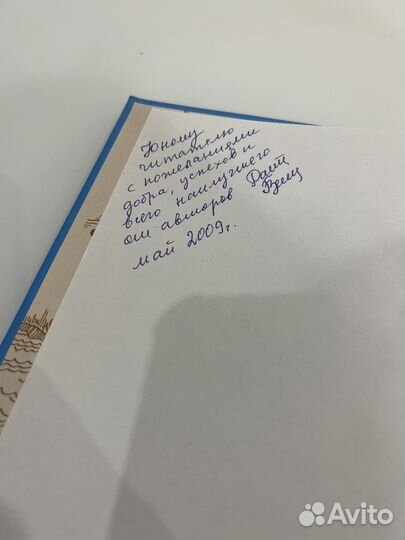 Юному
читателю
с пожеланиями
добра, успехов и
всего наилучшего
от авторов
май 2009г.
Avito